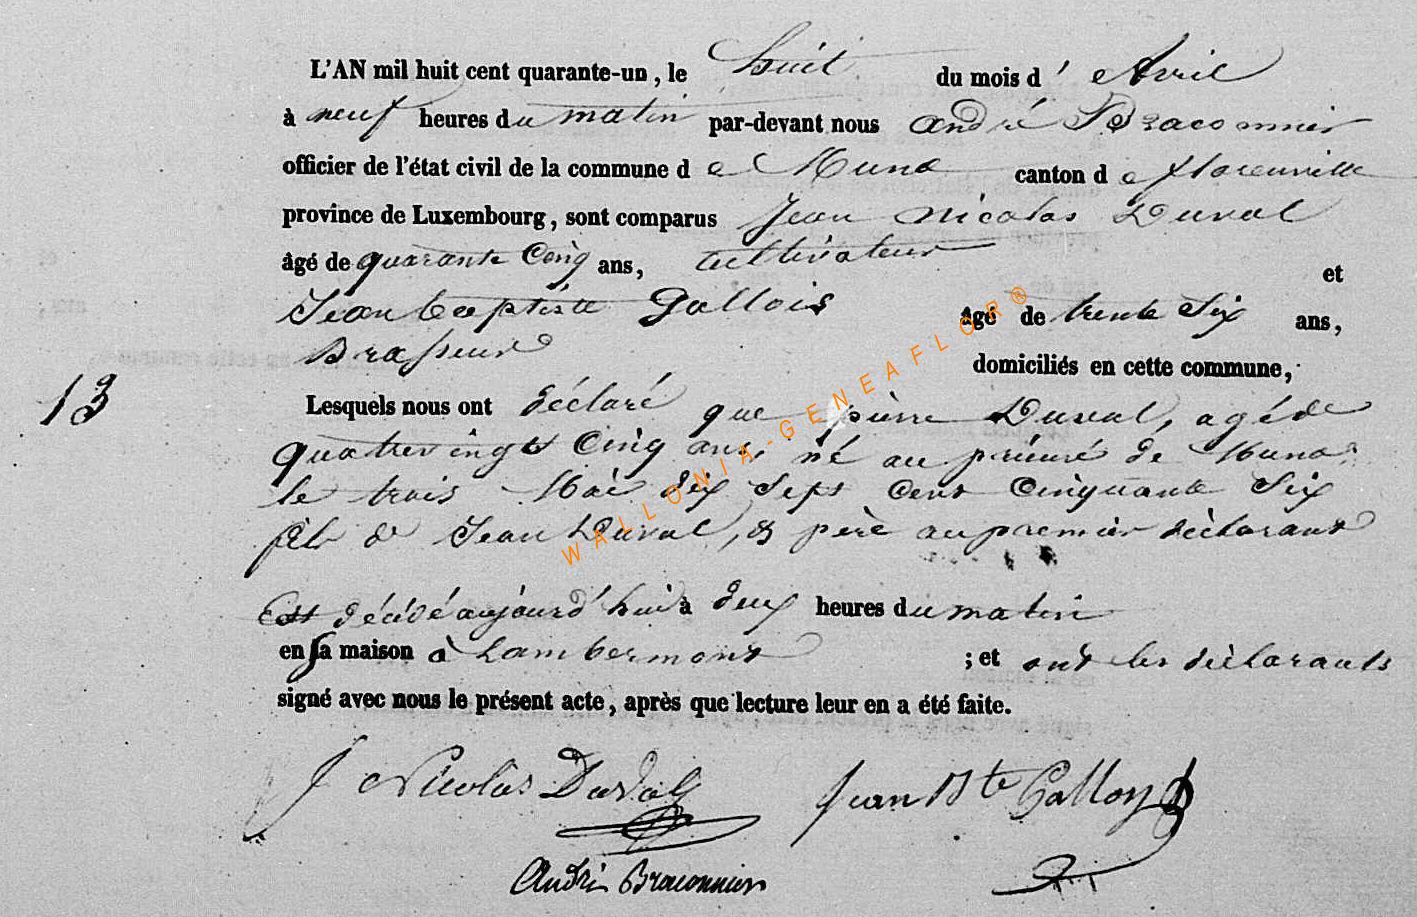 L'AN mil huit cent quarante-un, le huit du mois d' Avril
à neuf heures du matin par-devant nous André Braconnier
officier de l'état civil de la commune de Muno canton de florenville
province de Luxembourg, sont comparus Jean Nicolas Duval
âgé de quarante Cinq ans, Cultivateur et
Jean baptiste Gallois âgé de trente Six ans,
Brasseur domiciliés en cette commune,
13
Lesquels nous ont déclaré que pierre Duval, agé de
quatrevingt Cinq ans, né au prieuré de Muno
le trois Mai dix Sept Cent Cinquante Six
fils de Jean Duval, & père au premier déclarant
Est décédé aujourd'hui à deux heures du matin
en sa maison à Lambermont ; et ont les déclarants
signé avec nous le présent acte, après que lecture leur en a été faite.
J Nicolas Duval Jean Bte Galloy
André Braconnier
WALLONIA-GENEAFLOR®